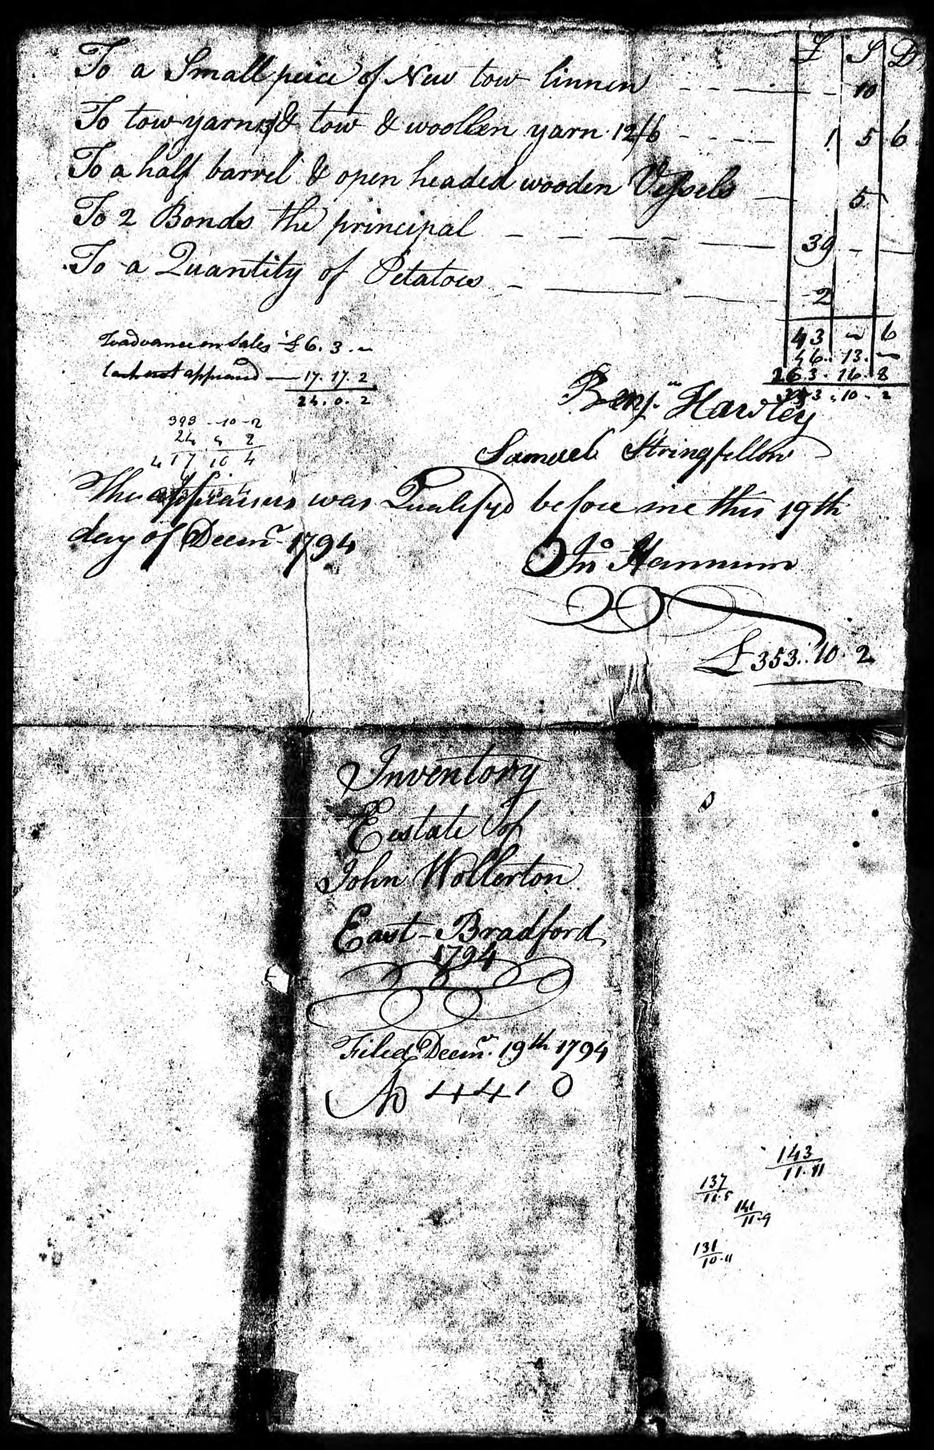 £ S D
To a Small peice of New tow linnen - - - - 10
To tow yarn & tow & woollen yarn 12/6 - - - - 1 5 6
To a half barrel & open headed wooden Vessels - 5
To 2 Bonds the principal - - - - - 39 - -
To a Quantity of Petatoes - - - 2
43 ~ 6
46 .. 13 . ~
263 . 16 . 8
353 . 10 . 2
To advance on Sales £6 . 3 . ~
Cash not appraised — 17 . 17 . 2
24 . 0 . 2
393 - 10 - 2
24 4 2
417 10 4
Benjn. Hawley
Samuel Stringfellow
The appraisers was Qualifyd before me this 19th
day of Decmr. 1794
Jno Hannum
£353 .. 10 . 2
Inventory
Eestate of
John Wollerton
East-Bradford
1794
Filed Decmr. 19th 1794
No 4410
143
11.11
137
11.5
141
11.9
131
10.11